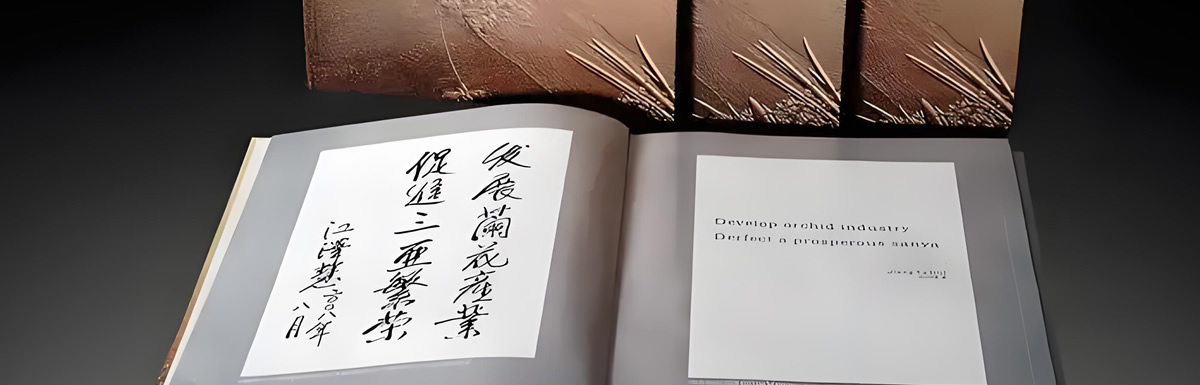 发展蘭花産業
促進三亚繁荣
江澤慧二〇〇八年
八月
Develop orchid industry
Perfect a prosperous sanya